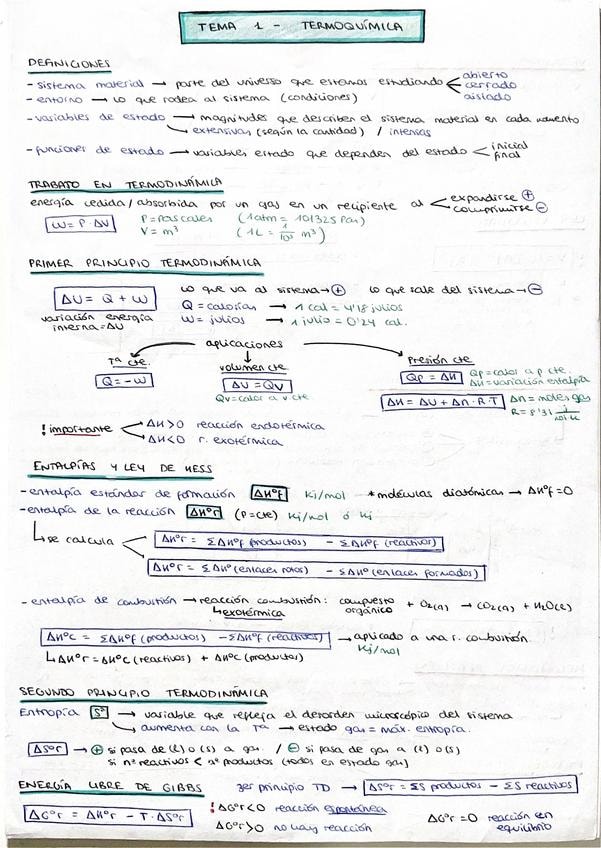 TEMA 1 - TERMOQUÍMICA
DEFINICIONES
- sistema material → parte del universo que estamos estudiando < abierto
cerrado
aislado
- entorno → lo que rodea al sistema (condiciones)
- variables de estado → magnitudes que describen el sistema material en cada momento
extensivas (según la cantidad) / intensas
- funciones de estado → variables estado que dependen del estado < inicial
final
TRABAJO EN TERMODINÁMICA
energía cedida/absorbida por un gas en un recipiente al < expandirse ⊕
comprimirse ⊖
W = P · ΔV
P = pascales (1 atm = 101325 Pas)
V = m³ (1L = 1/10³ m³)
PRIMER PRINCIPIO TERMODINÁMICA
ΔU = Q + W
lo que va al sistema → ⊕ lo que sale del sistema → ⊖
Q = calorías → 1 cal = 4'18 julios
variación energía
interna = ΔU
W = julios → 1 julio = 0'24 cal.
aplicaciones
Tª cte.
Q = -W
volumen cte
ΔU = Qv
Qv = calor a v cte
Presión cte
Qp = ΔH
Qp = calor a p cte.
ΔH = variación entalpía
ΔH = ΔU + Δn · R · T
Δn = moles gas
R = 8'31 J/mol·K
! importante < ΔH > 0 reacción endotérmica
ΔH < 0 r. exotérmica
ENTALPÍAS Y LEY DE HESS
- entalpía estándar de formación ΔHºf Kj/mol * moléculas diatónicas → ΔHºf = 0
- entalpía de la reacción ΔHºr (P = cte) Kj/mol ó Kj
se calcula < ΔHºr = ΣΔHºf productos - ΣΔHºf (reactivos)
ΔHºr = ΣΔHº (enlaces rotos) - ΣΔHº (enlaces formados)
- entalpía de combustión → reacción combustión: compuesto orgánico + O₂(g) → CO₂(g) + H₂O(l)
exotérmica
ΔHºc = ΣΔHºf (productos) - ΣΔHºf (reactivos) → aplicado a una r. combustión
Kj/mol
ΔHºr = ΔHºc (reactivos) + ΔHºc (productos)
SEGUNDO PRINCIPIO TERMODINÁMICA
Entropía Sº → variable que refleja el desorden microscópico del sistema
aumenta con la Tª → estado gas = máx. entropía.
ΔSºr → ⊕ si pasa de (l) o (s) a gas. / ⊖ si pasa de gas a (l) o (s)
si nº reactivos < nº productos (todos en estado gas)
ENERGÍA LIBRE DE GIBBS
3er principio TD → ΔSºr = ΣS productos - ΣS reactivos
ΔGºr = ΔHºr - T · ΔSºr
! ΔGºr < 0 reacción espontánea
ΔGºr > 0 no hay reacción
ΔGºr = 0 reacción en
equilibrio